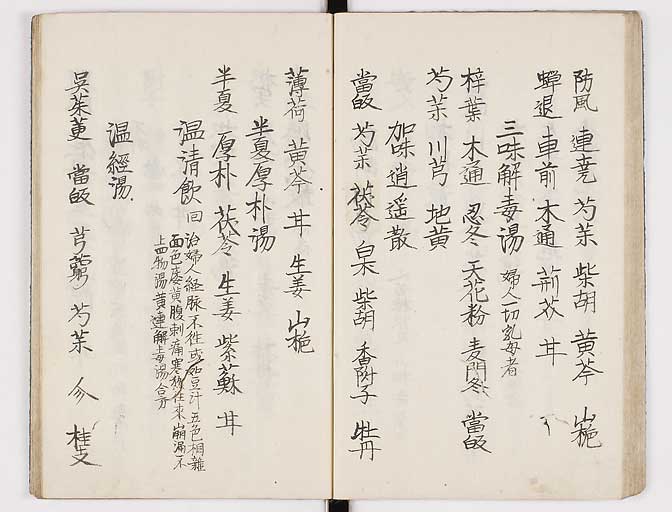 防風 連堯 芍茱 柴胡 黄芩 山梔
蝉退 車前 木通 荊芥 甘
三味解毒湯 婦人一切乳毎者
梓葉 木通 忍冬 天花粉 麦門冬 當皈
芍茱 川芎 地黄
加味逍遥散
當皈 芍茱 茯苓 白朮 柴胡 香附子 牡丹
薄荷 黄芩 甘 生姜 山梔
半夏厚朴湯
半夏 厚朴 茯苓 生姜 紫蘇 甘
温清飲 回 治婦人経脉不往或如豆汁五色相雜
面色痿黄腹刺痛寒熱往来崩漏不
止四物湯黄連解毒湯合方
温經湯
呉茱萸 當皈 芎藭 芍茱 参 桂支